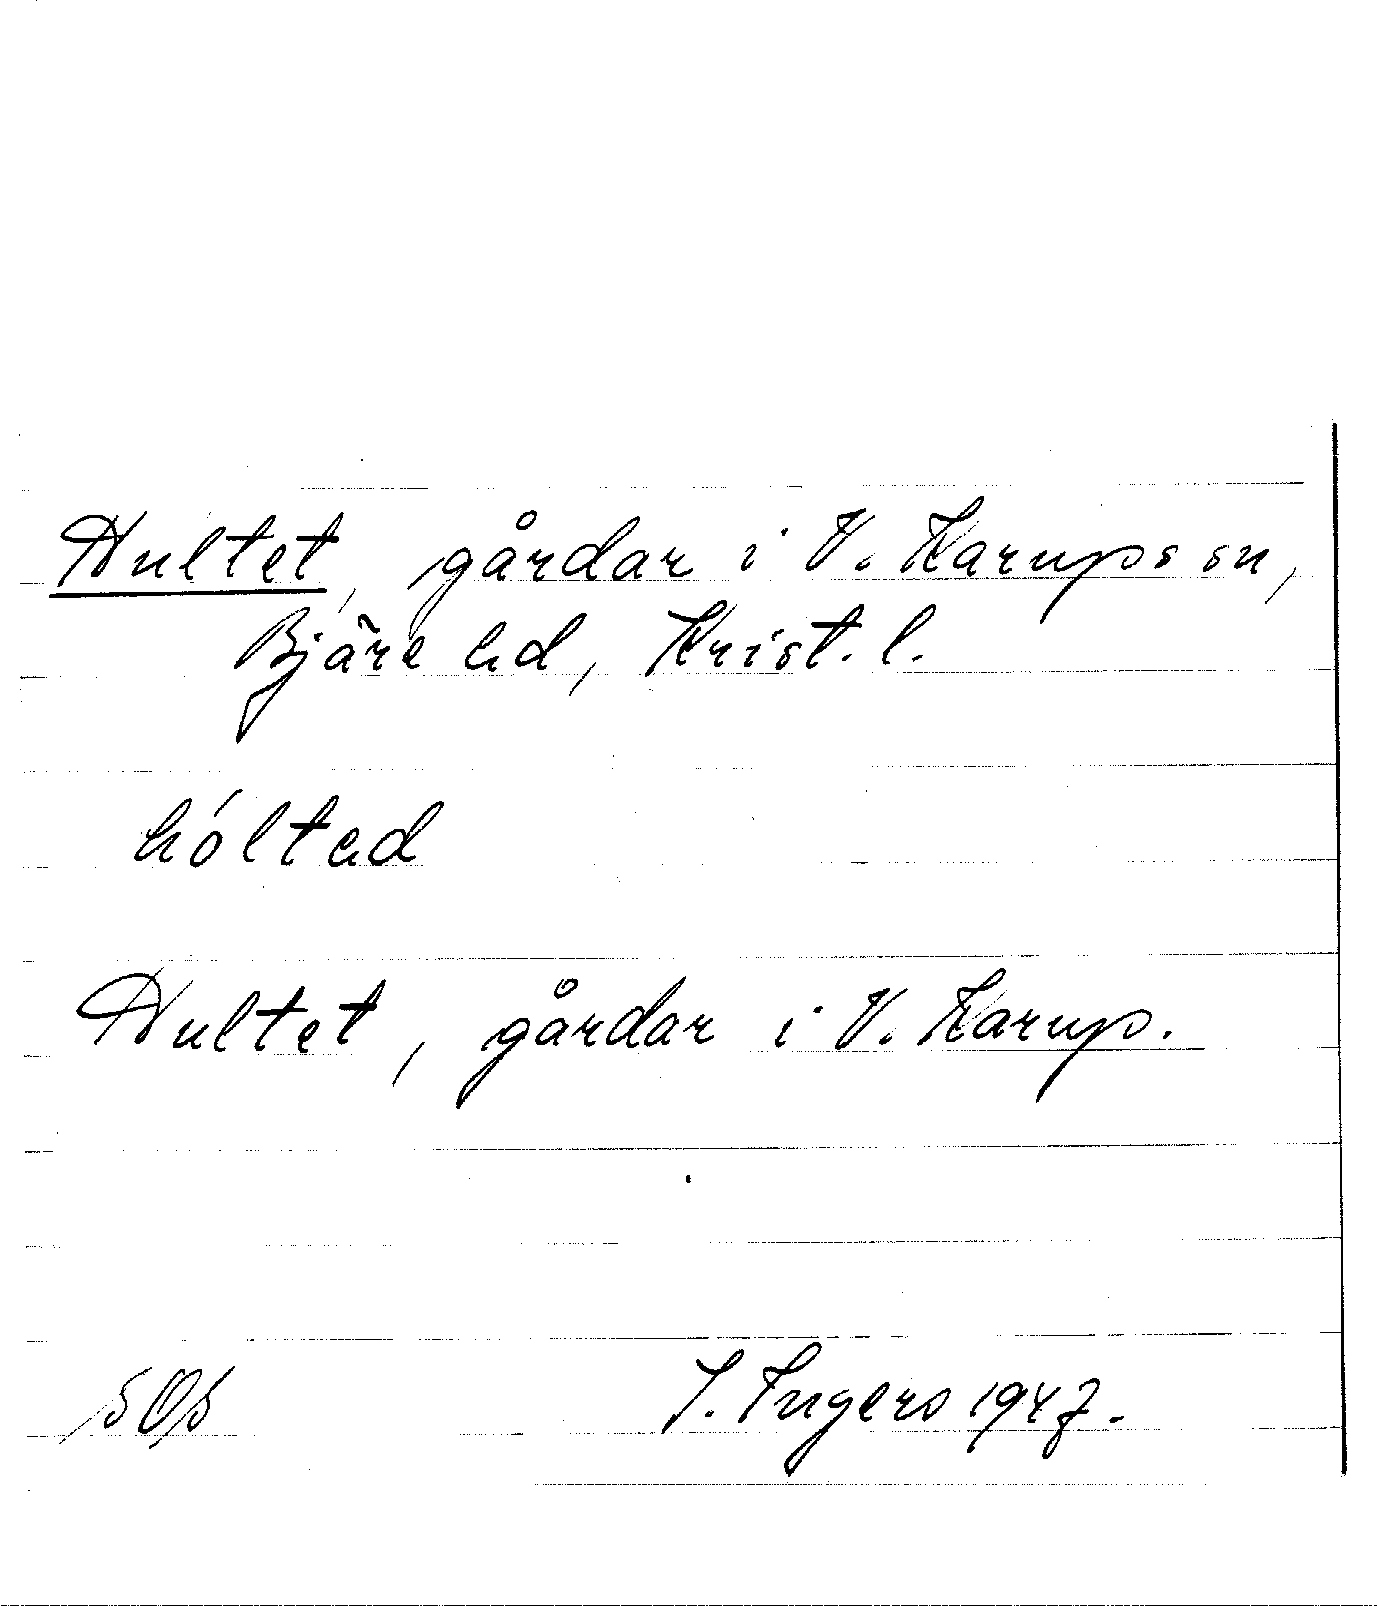 Hultet, gårdar i V. Karups sn,
Bjäre hd, Krist. l.
hólted
Hultet, gårdar i V. Karup.
I. Ingers 1947.